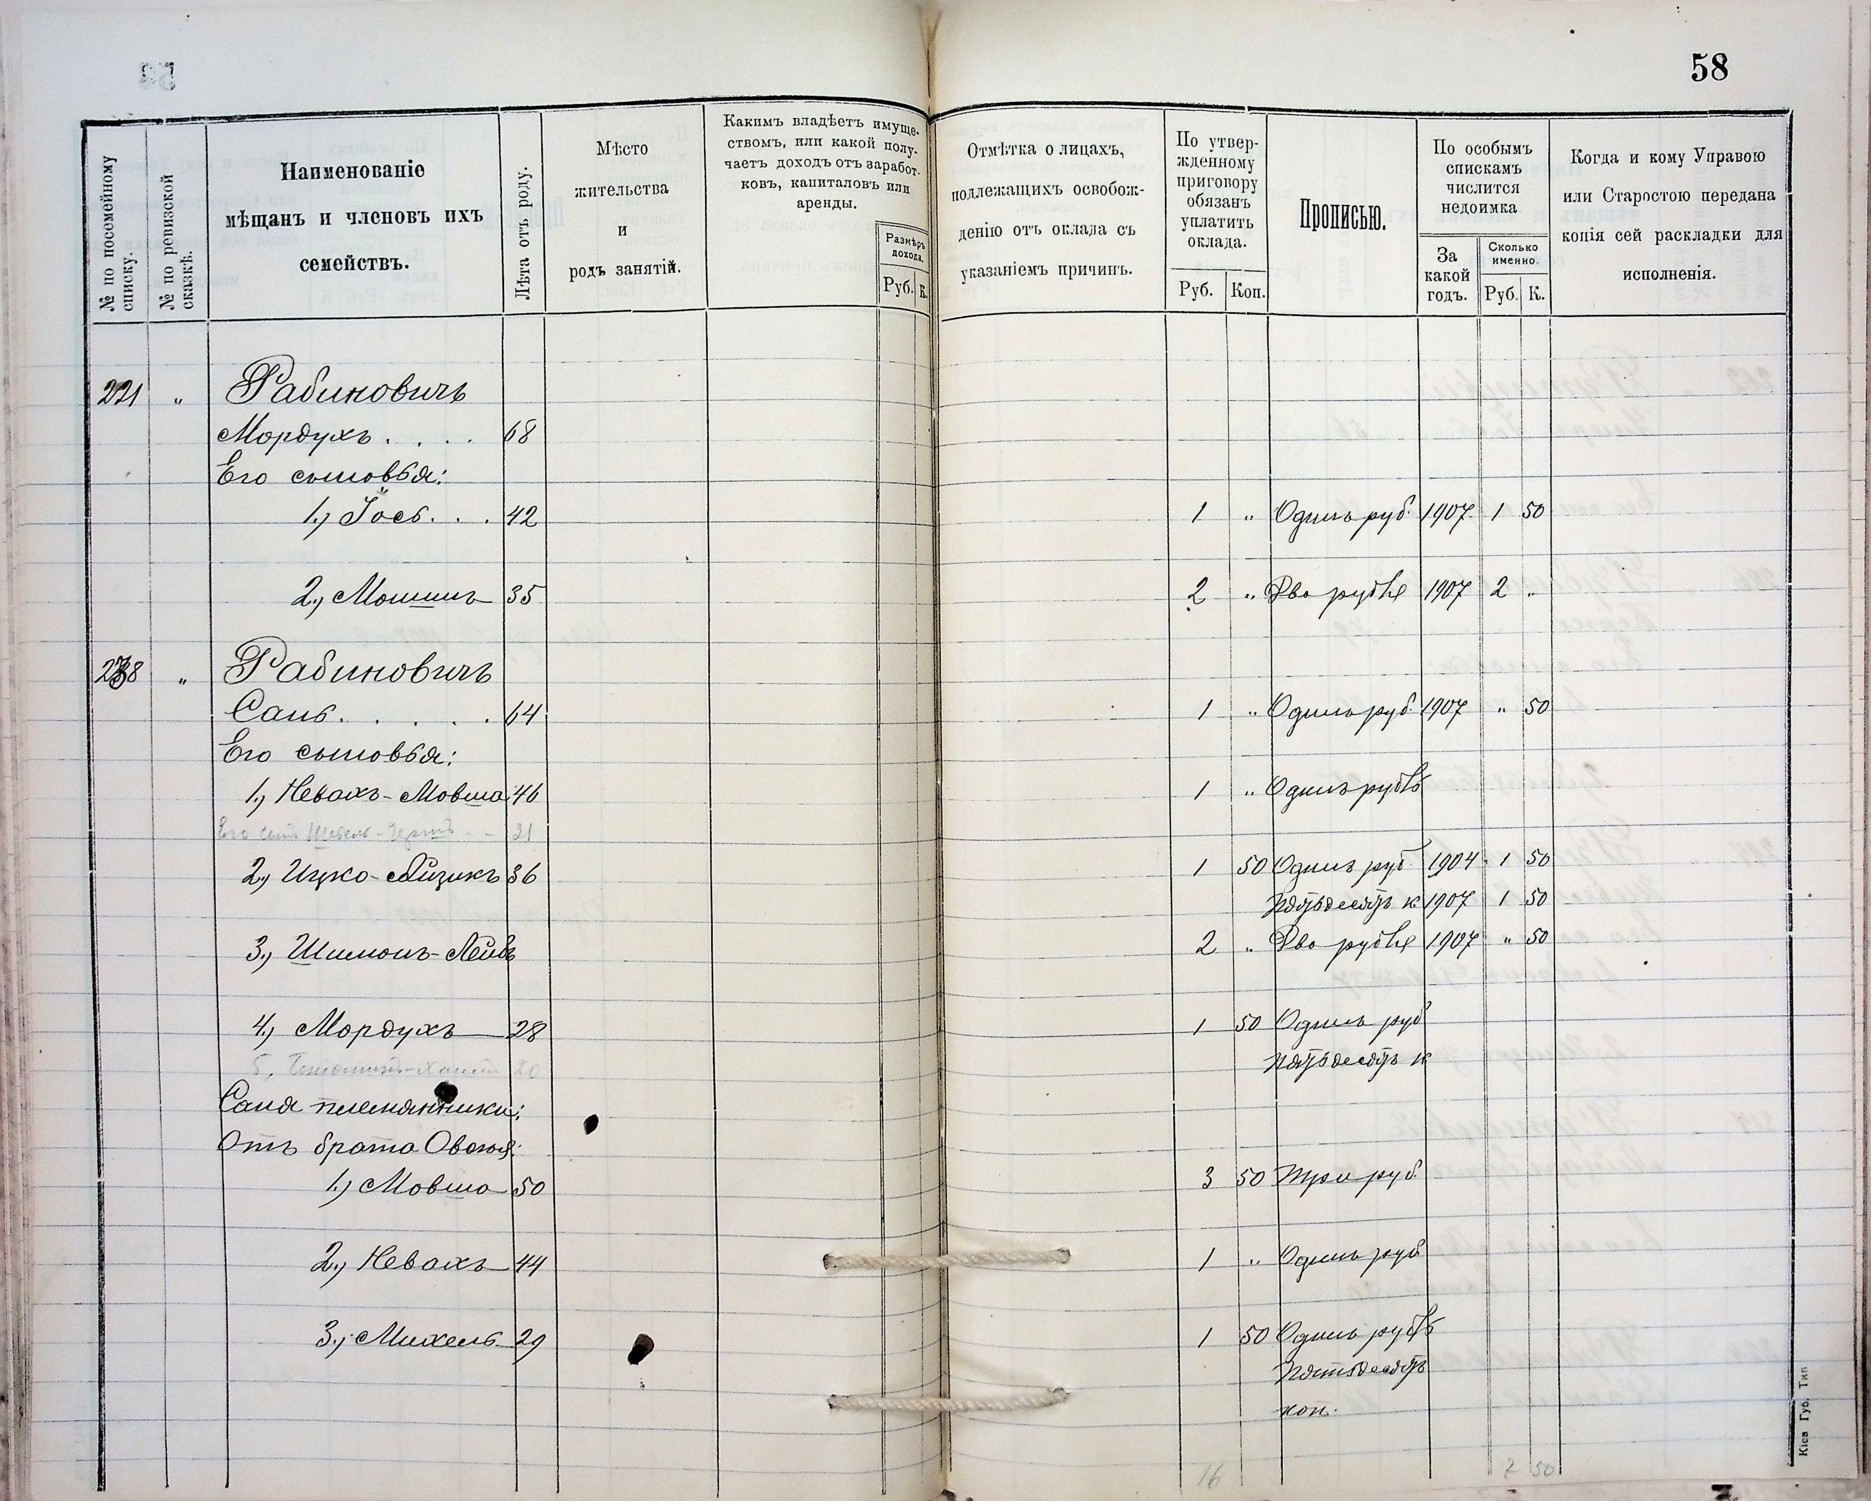 58
№ по посемейному списку.
№ по ревизской сказкѣ.
Наименованіе
мѣщанъ и членовъ ихъ
семействъ.
Лѣта отъ роду.
Мѣсто
жительства
и
родъ занятій.
Какимъ владѣетъ имуще-
ствомъ, или какой полу-
чаетъ доходъ отъ заработ-
ковъ, капиталовъ или
аренды.
Размѣръ
дохода.
Руб. К.
Отмѣтка о лицахъ,
подлежащихъ освобож-
денію отъ оклада съ
указаніемъ причинъ.
По утвер-
жденному
приговору
обязанъ
уплатить
оклада.
Руб. Коп.
Прописью.
По особымъ
спискамъ
числится
недоимка
За
какой
годъ.
Сколько
именно.
Руб. К.
Когда и кому Управою
или Старостою передана
копія сей раскладки для
исполненія.
221 " Рабиновичъ
Мордухъ . . . . 68
Его сыновья:
1.) Йось . . . 42 1 " Одинъ руб. 1907 1 50
2.) Мошинъ 35 2 " Два рубля 1907 2 "
238 " Рабиновичъ
Сань . . . . . 64 1 " Одинъ руб 1907 " 50
Его сыновья:
1.) Невахъ-Мовша 46 1 " Одинъ рубль
Его сынъ 21
2.) Ицко-Айзикъ 36 1 50 Одинъ руб 1904 1 50
пятьдесятъ к 1907 1 50
3.) Шимонъ-Лейбъ 2 " Два рубля 1907 " 50
4.) Мордухъ 28 1 50 Одинъ руб
пятьдесятъ к
5. 20
Саня племянники:
Отъ брата Овсія:
1.) Мовша 50 3 50 Три руб.
2.) Невахъ 44 1 " Одинъ руб
3.) Михель 29 1 50 Одинъ рубль
пятьдесятъ
коп.
16 7 50
Кіев Губ. Тип